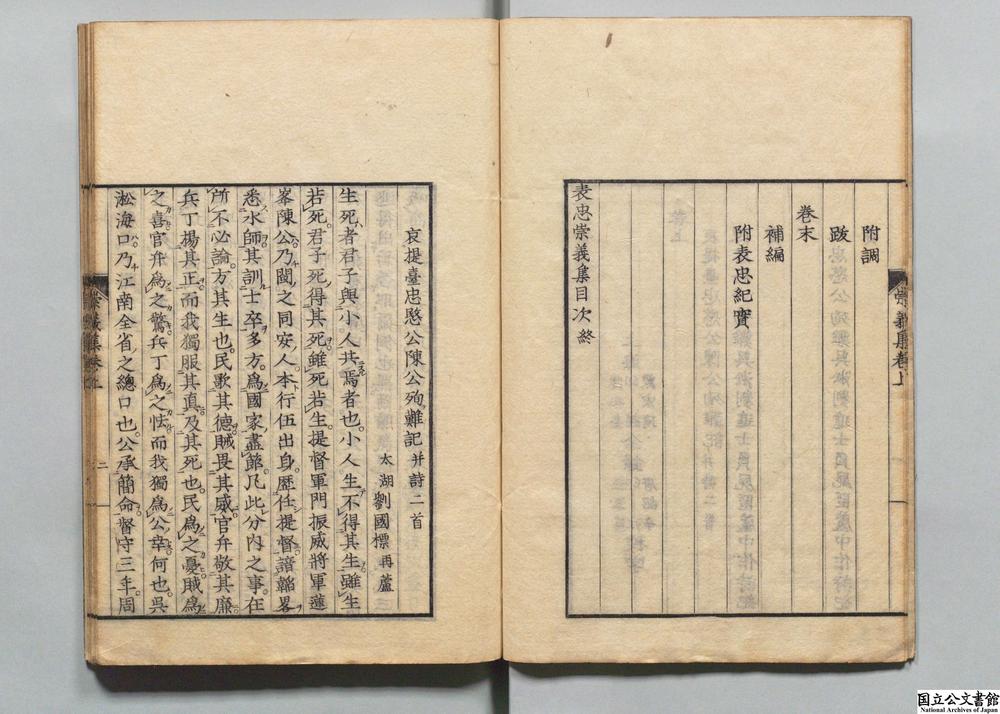 附調
跋
卷末
補編
附表忠紀實
表忠崇義集目次終
崇義集卷上
哀提臺忠愍公陳公殉難記 并詩二首
太湖 劉國標 再蘆
生死者君子與小人共焉者也小人生不得其生雖生
若死君子死得其死雖死若生提督軍門振威將軍蓮
峯陳公乃閩之同安人本行伍出身歷任提督諳韜畧
悉水師其訓士卒多方爲國家盡節凡此分內之事在
所不必論方其生也民歌其德賊畏其威官弁敬其廉
兵丁揚其正而我獨服其真及其死也民爲之憂賊爲
之喜官弁爲之驚兵丁爲之怯而我獨爲公幸何也吳
淞海口乃江南全省之總口也公承簡命督守三年周
二
国立公文書館
National Archives of Japan